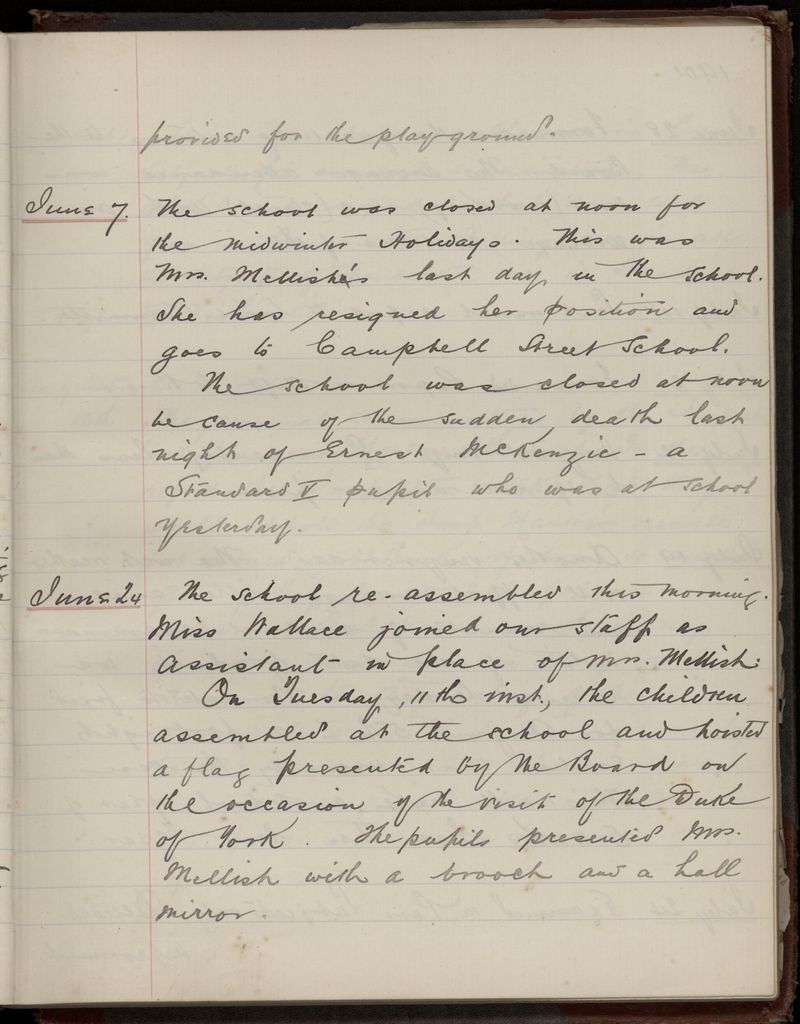 provided for the play-ground.
June 7. The school was closed at noon for
the midwinter Holidays. This was
Mrs. Mellish's last day in the school.
She has resigned her position and
goes to Campbell Street School.
The school was closed at noon
because of the sudden death last
night of Ernest McKenzie - a
Standard V pupil who was at school
yesterday.
June 24 The school re-assembled this morning.
Miss Wallace joined our staff as
assistant in place of Mrs. Mellish.
On Tuesday, 11th inst., the children
assembled at the school and hoisted
a flag presented by the Board on
the occasion of the visit of the Duke
of York. The pupils presented Mrs.
Mellish with a brooch and a hall
mirror.